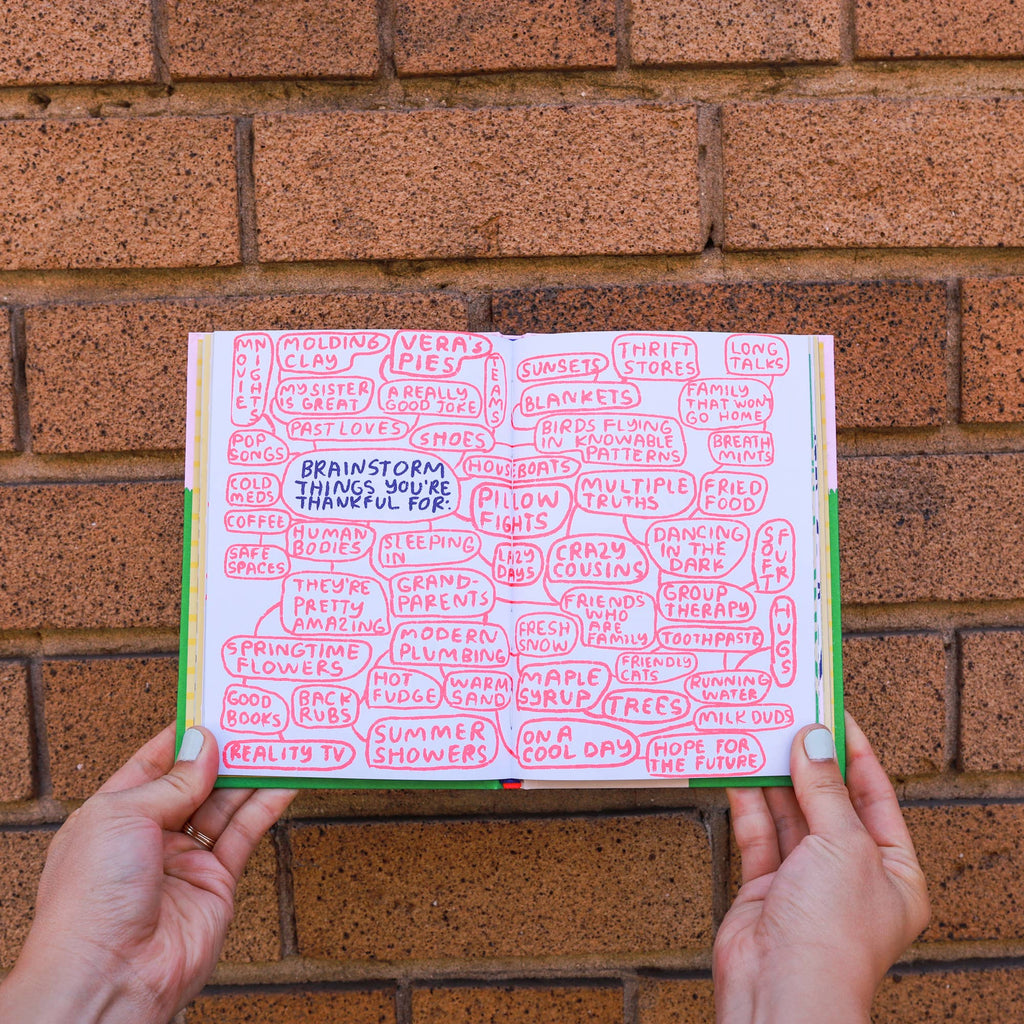 MOVIE
NIGHTS
MOLDING
CLAY
VERA'S
PIES
TEAMS
MY SISTER
IS GREAT
A REALLY
GOOD JOKE
PAST LOVES
SHOES
POP
SONGS
BRAINSTORM
THINGS YOU'RE
THANKFUL FOR:
HOUSEBOATS
COLD
MEDS
PILLOW
FIGHTS
COFFEE
HUMAN
BODIES
SLEEPING
IN
SAFE
SPACES
LAZY
DAYS
THEY'RE
PRETTY
AMAZING
GRAND-
PARENTS
MODERN
PLUMBING
SPRINGTIME
FLOWERS
HOT
FUDGE
WARM
SAND
GOOD
BOOKS
BACK
RUBS
SUMMER
SHOWERS
REALITY TV
SUNSETS
THRIFT
STORES
LONG
TALKS
BLANKETS
FAMILY
THAT WON'T
GO HOME
BIRDS FLYING
IN KNOWABLE
PATTERNS
BREATH
MINTS
MULTIPLE
TRUTHS
FRIED
FOOD
CRAZY
COUSINS
DANCING
IN THE
DARK
SOFT
FUR
FRIENDS
WHO
ARE
FAMILY
GROUP
THERAPY
HUGS
FRESH
SNOW
TOOTHPASTE
FRIENDLY
CATS
MAPLE
SYRUP
RUNNING
WATER
TREES
MILK DUDS
ON A
COOL DAY
HOPE FOR
THE FUTURE